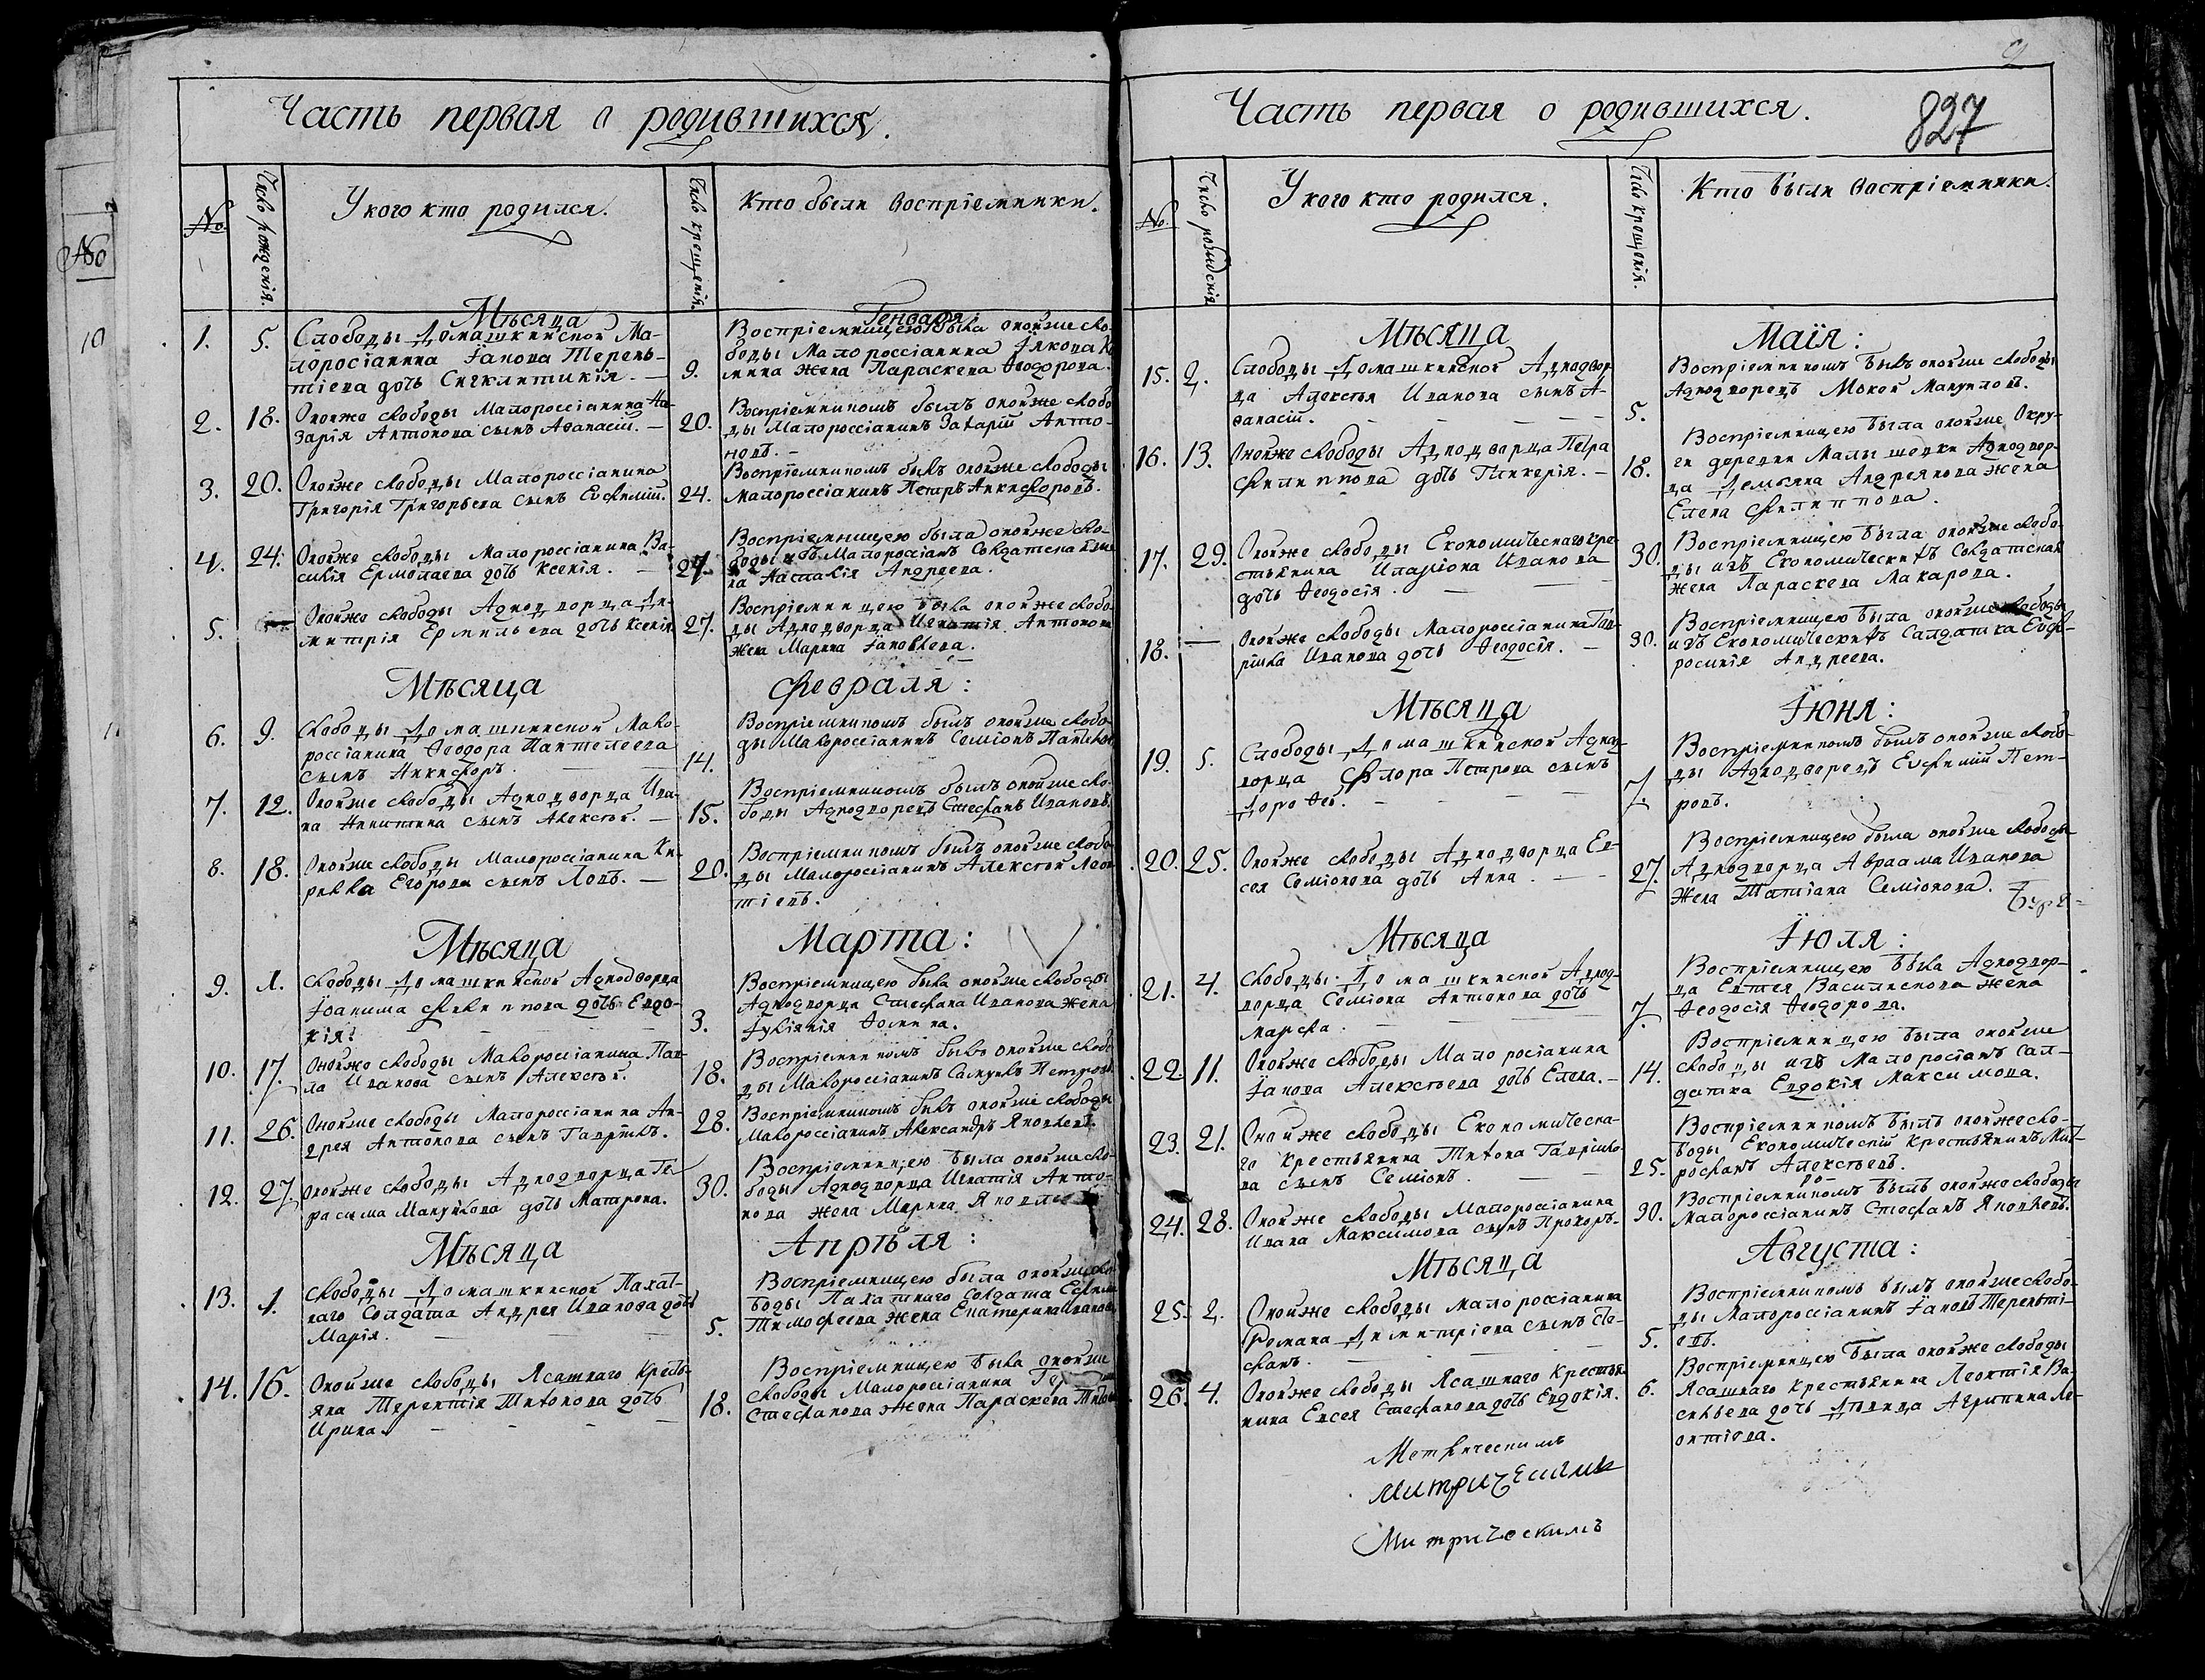 Часть первая о родившихся.
№
Число рождения.
У кого кто родился.
Число крещенія.
Кто были воспріемники.
Мѣсяца Генваря:
1. 5.
Слободы Домашкинской Ма-
лоросіанина Іакова Терень-
тіева дочь Сигклитикія. —
9.
Воспріемницею была оной же сло-
боды Малороссіанина Іакова
мина жена Параскева Ѳеодорова.
2. 18.
Оной же слободы Малороссіанина На-
зарія Антонова сынъ Аѳанасій. —
20.
Воспріемникомъ былъ оной же слобо
ды Малороссіанинъ Захарій Анто-
новъ. —
3. 20.
Оной же слободы Малороссіанина
Григорія Григорьева сынъ Евфимій.
24.
Воспріемникомъ былъ оной же слободы
Малороссіанинъ Петръ Никифоровъ.
4. 24.
Оной же слободы Малороссіанина Ва-
силія Ермолаева дочь Ксенія. —
27.
Воспріемницею была оной же сло-
боды изъ Малороссіанъ Солдатска жена
Настасія Андреева.
5. —
Оной же слободы Аднодворца Ди-
митрія Ермильева дочь Ксенія
27.
Воспріемницею была оной же слобо-
ды Аднодворца Игнатія Антонова
жена Марина Іаковлева.
Мѣсяца Февраля:
6. 9.
Слободы Домашкинской Мало-
россіанина Ѳеодора Пантелеева
сынъ Никифоръ. —
14.
Воспріемникомъ былъ оной же слобо-
ды Малороссіанинъ Семіонъ
7. 12.
Оной же слободы Аднодворца Ива-
на Никитина сынъ Алексѣй. —
15.
Воспріемникомъ былъ оной же сло-
боды Аднодворецъ Стефанъ Ивановъ.
8. 18.
Оной же слободы Малороссіанина Ки-
рилла Егорова сынъ Левъ. —
20.
Воспріемникомъ былъ оной же слобо
ды Малороссіанинъ Алексѣй Леон
тіевъ.
Мѣсяца Марта:
9. 1.
Слободы Домашкинской Аднодворца
Іоакима Филиппова дочь Евдо-
кія.
3.
Воспріемницею была оной же слободы
Аднодворца Стефана Иванова жена
Іуліянія Ѳомина.
10. 17.
Оной же слободы Малороссіанина Пав-
ла Иванова сынъ Алексѣй.
18.
Воспріемникомъ былъ оной же слобо
ды Малороссіанинъ Самуилъ Петровъ
11. 26.
Оной же слободы Малороссіанина Ан-
дрея Антонова сынъ Гавріилъ.
28.
Воспріемникомъ былъ оной же слободы
Малороссіанинъ Александръ Яковлевъ.
12. 27.
Оной же слободы Аднодворца Ге-
расима Мануилова дочь Матрона.
30.
Воспріемницею была оной же сло-
боды Аднодворца Игнатія Анто-
нова жена Марина
Мѣсяца Апрѣля:
13. 1.
Слободы Домашкинской Пахат-
наго Солдата Андрея Иванова дочь
Марія. —
5.
Воспріемницею была оной же сло-
боды Пахатнаго Солдата
Тимофеева жена Екатерина Иванова
14. 16.
Оной же слободы Ясашнаго Кресть-
яна Терентія Титонова дочь
Ирина.
18.
Воспріемницею была оной же
слободы Малороссіанина
Стефанова жена Параскева
Часть первая о родившихся.
827
№
Число рождения
У кого кто родился.
Число крещенія.
Кто были воспріемники.
Мѣсяца Маія:
15. 2.
Слободы Домашкинской Аднодвор
ца Алексѣя Иванова сынъ А-
ѳанасій. —
5.
Воспріемникомъ былъ оной же слободы
Аднодворецъ Мокей Мануиловъ.
16. 13.
Оной же слободы Аднодворца Петра
Филиппова дочь Гликерія. —
18.
Воспріемницею была оной же Окру-
ги деревни Малышевки Аднодвор-
ца Демьяна Андреянова жена
Елена Филиппова.
17. 29.
Оной же слободы Економическаго кре-
стьянина Иларіона Иванова
дочь Ѳеодосія. —
30.
Воспріемницею была оной же слобо-
ды изъ Економическихъ Солдатская
жена Параскева Макарова.
18. —
Оной же слободы Малороссіанина Гав-
ріила Иванова дочь Ѳеодосія. —
30.
Воспріемницею была оной же слободы
изъ Економическихъ Салдатка Евф-
росинія Андреева.
Мѣсяца Іюня:
19. 5.
Слободы Домашкинской Аднод-
ворца Флора Петрова сынъ
Дорофей. —
7.
Воспріемникомъ былъ оной же слобо-
ды Аднодворецъ Евфимій Пет-
ровъ.
20. 25.
Оной же слободы Аднодворца Ев-
сея Семіонова дочь Анна. —
27.
Воспріемницею была оной же слободы
Аднодворца Авраама Иванова
жена Татіана Семіонова.
Мѣсяца Іюля:
21. 4.
Слободы Домашкинской Аднод-
ворца Семіона Антонова дочь
Марфа. —
7.
Воспріемницею была Аднодвор-
ца Евтея Василискова жена
Ѳеодосія Ѳеодорова.
22. 11.
Оной же слободы Малоросіанина
Іакова Алексѣева дочь Елена. —
14.
Воспріемницею была оной же
слободы изъ Малоросіанъ Сал-
датка Евдокія Максимова.
23. 21.
Оной же слободы Економическа-
го крестьянина Титона Гаврило-
ва сынъ Семіонъ. —
25.
Воспріемникомъ былъ оной же сло-
боды Економическій Крестьянинъ Мит-
рофанъ Алексѣевъ.
24. 28.
Оной же слободы Малороссіанина
Ивана Максимова сынъ Прохоръ.
30.
Воспріемникомъ былъ оной же слободы
Малороссіанинъ Стефанъ Яковлевъ.
Мѣсяца Августа:
25. 2.
Оной же слободы Малороссіанина
Романа Димитріева сынъ Сте-
фанъ. —
5.
Воспріемникомъ былъ оной же слобо-
ды Малороссіанинъ Іаковъ Терентті-
евъ.
26. 4.
Оной же слободы Ясашнаго Крестья
нина Евсея Стефанова дочь Евдокія.
6.
Воспріемницею была оной же слободы
Ясашнаго крестьянина Леонтія Ва-
сильева дочь дѣвица Агрипина Ле-
онтіева.
Метрическимъ
Митрическимъ
Митрическимъ